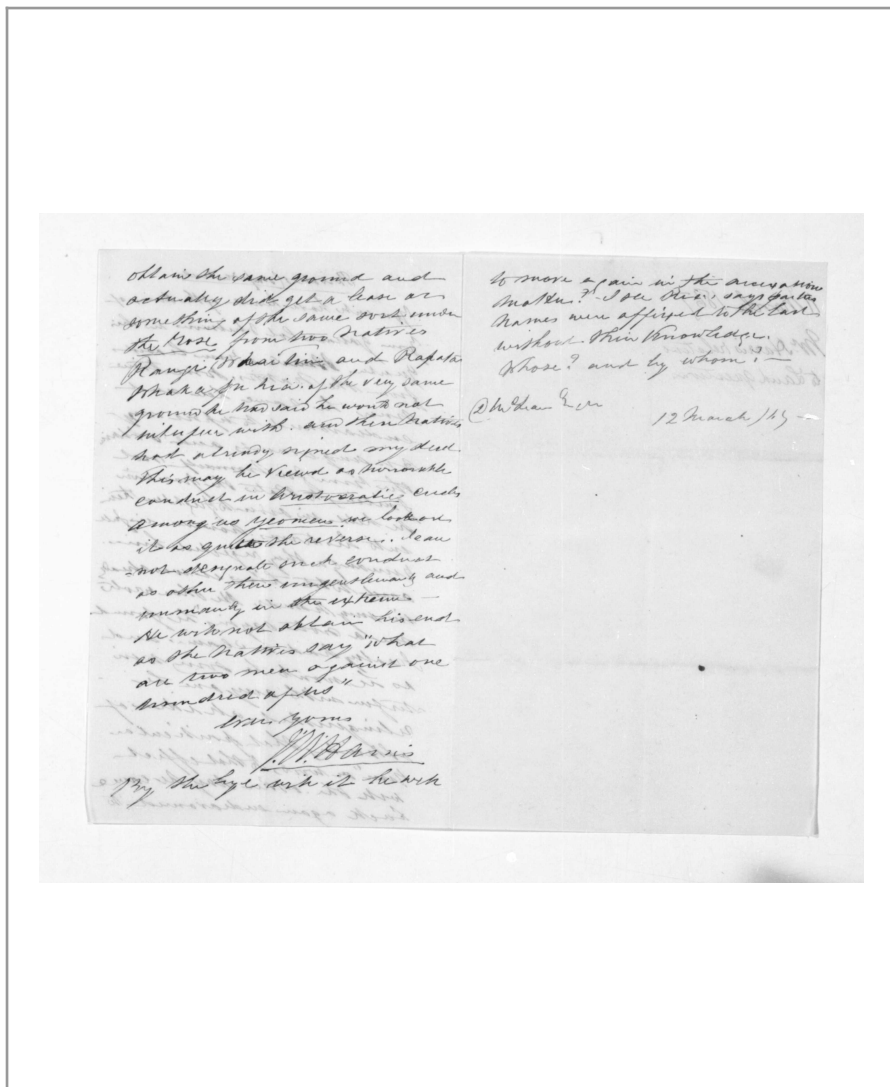 obtain the same ground and
actually did get a lease or
something of the same sort under
the Rose from two Natives
Rangi and Rapata
Whaka for him. of the very same
ground he had said he would not
interfere with. and then Natives
had already signed my deed.
This may be viewd as honorable
conduct in Aristocratic circles
among us yeomen we look on
it as quite the reverse. I can
not designate such conduct
as other then ungentlemanly and
unmanly in the extreme —
He will not obtain his end
as the Natives say "What
are two men against one
hundred of us"
Yours
J.W. Harris
By the bye will it be well
to move again in the
matter? I see says parties
names were affixed to the last
without their Knowledge.
Whose? and by whom? —
D McLean Esqr
12 March /69